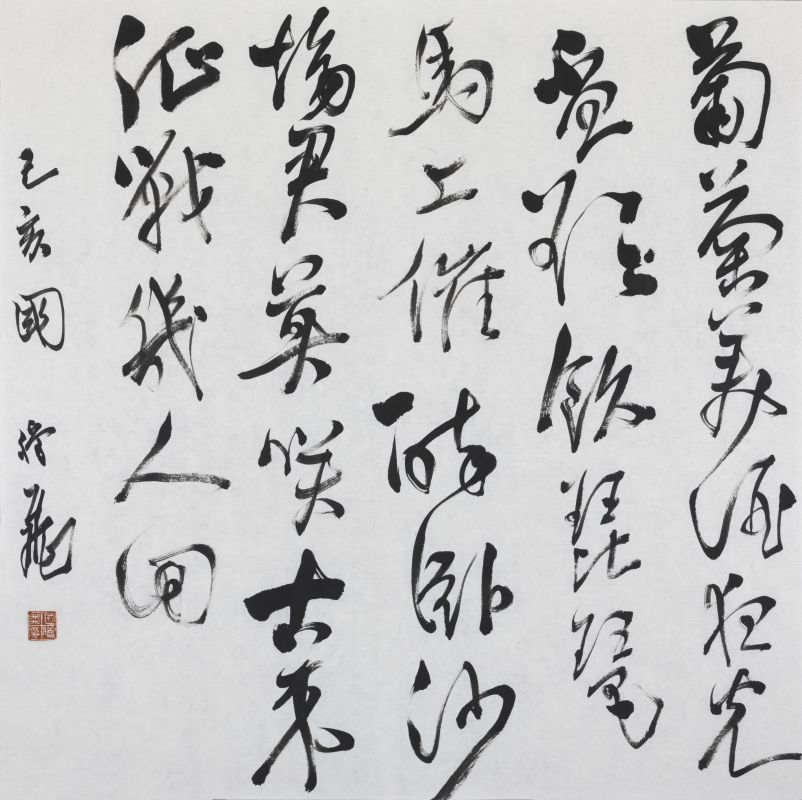 葡萄美酒夜光
盃欲飲琵琶
馬上催醉臥沙
場君莫咲古來
征戰幾人回
己亥國